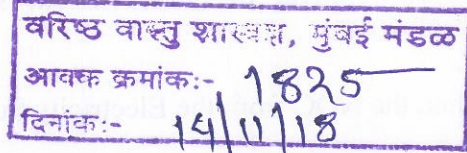 वरिष्ठ वास्तु शास्त्रज्ञ, मुंबई मंडळ
आवक क्रमांक:- 1825
दिनांक:- 14/11/18